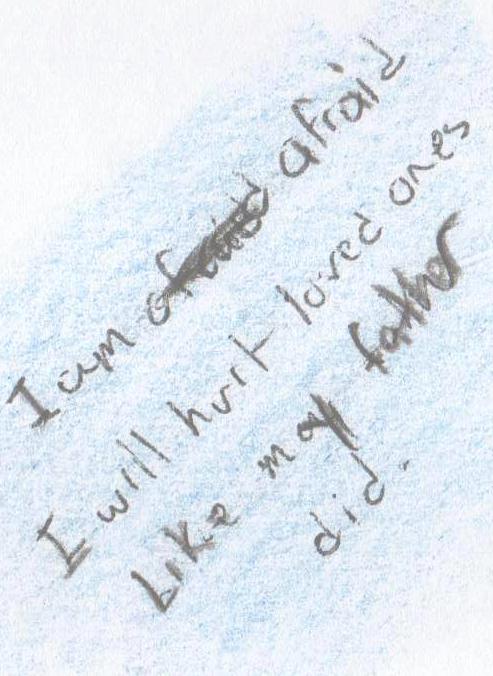 I am afraid afraid
I will hurt loved ones
Like my father
did.